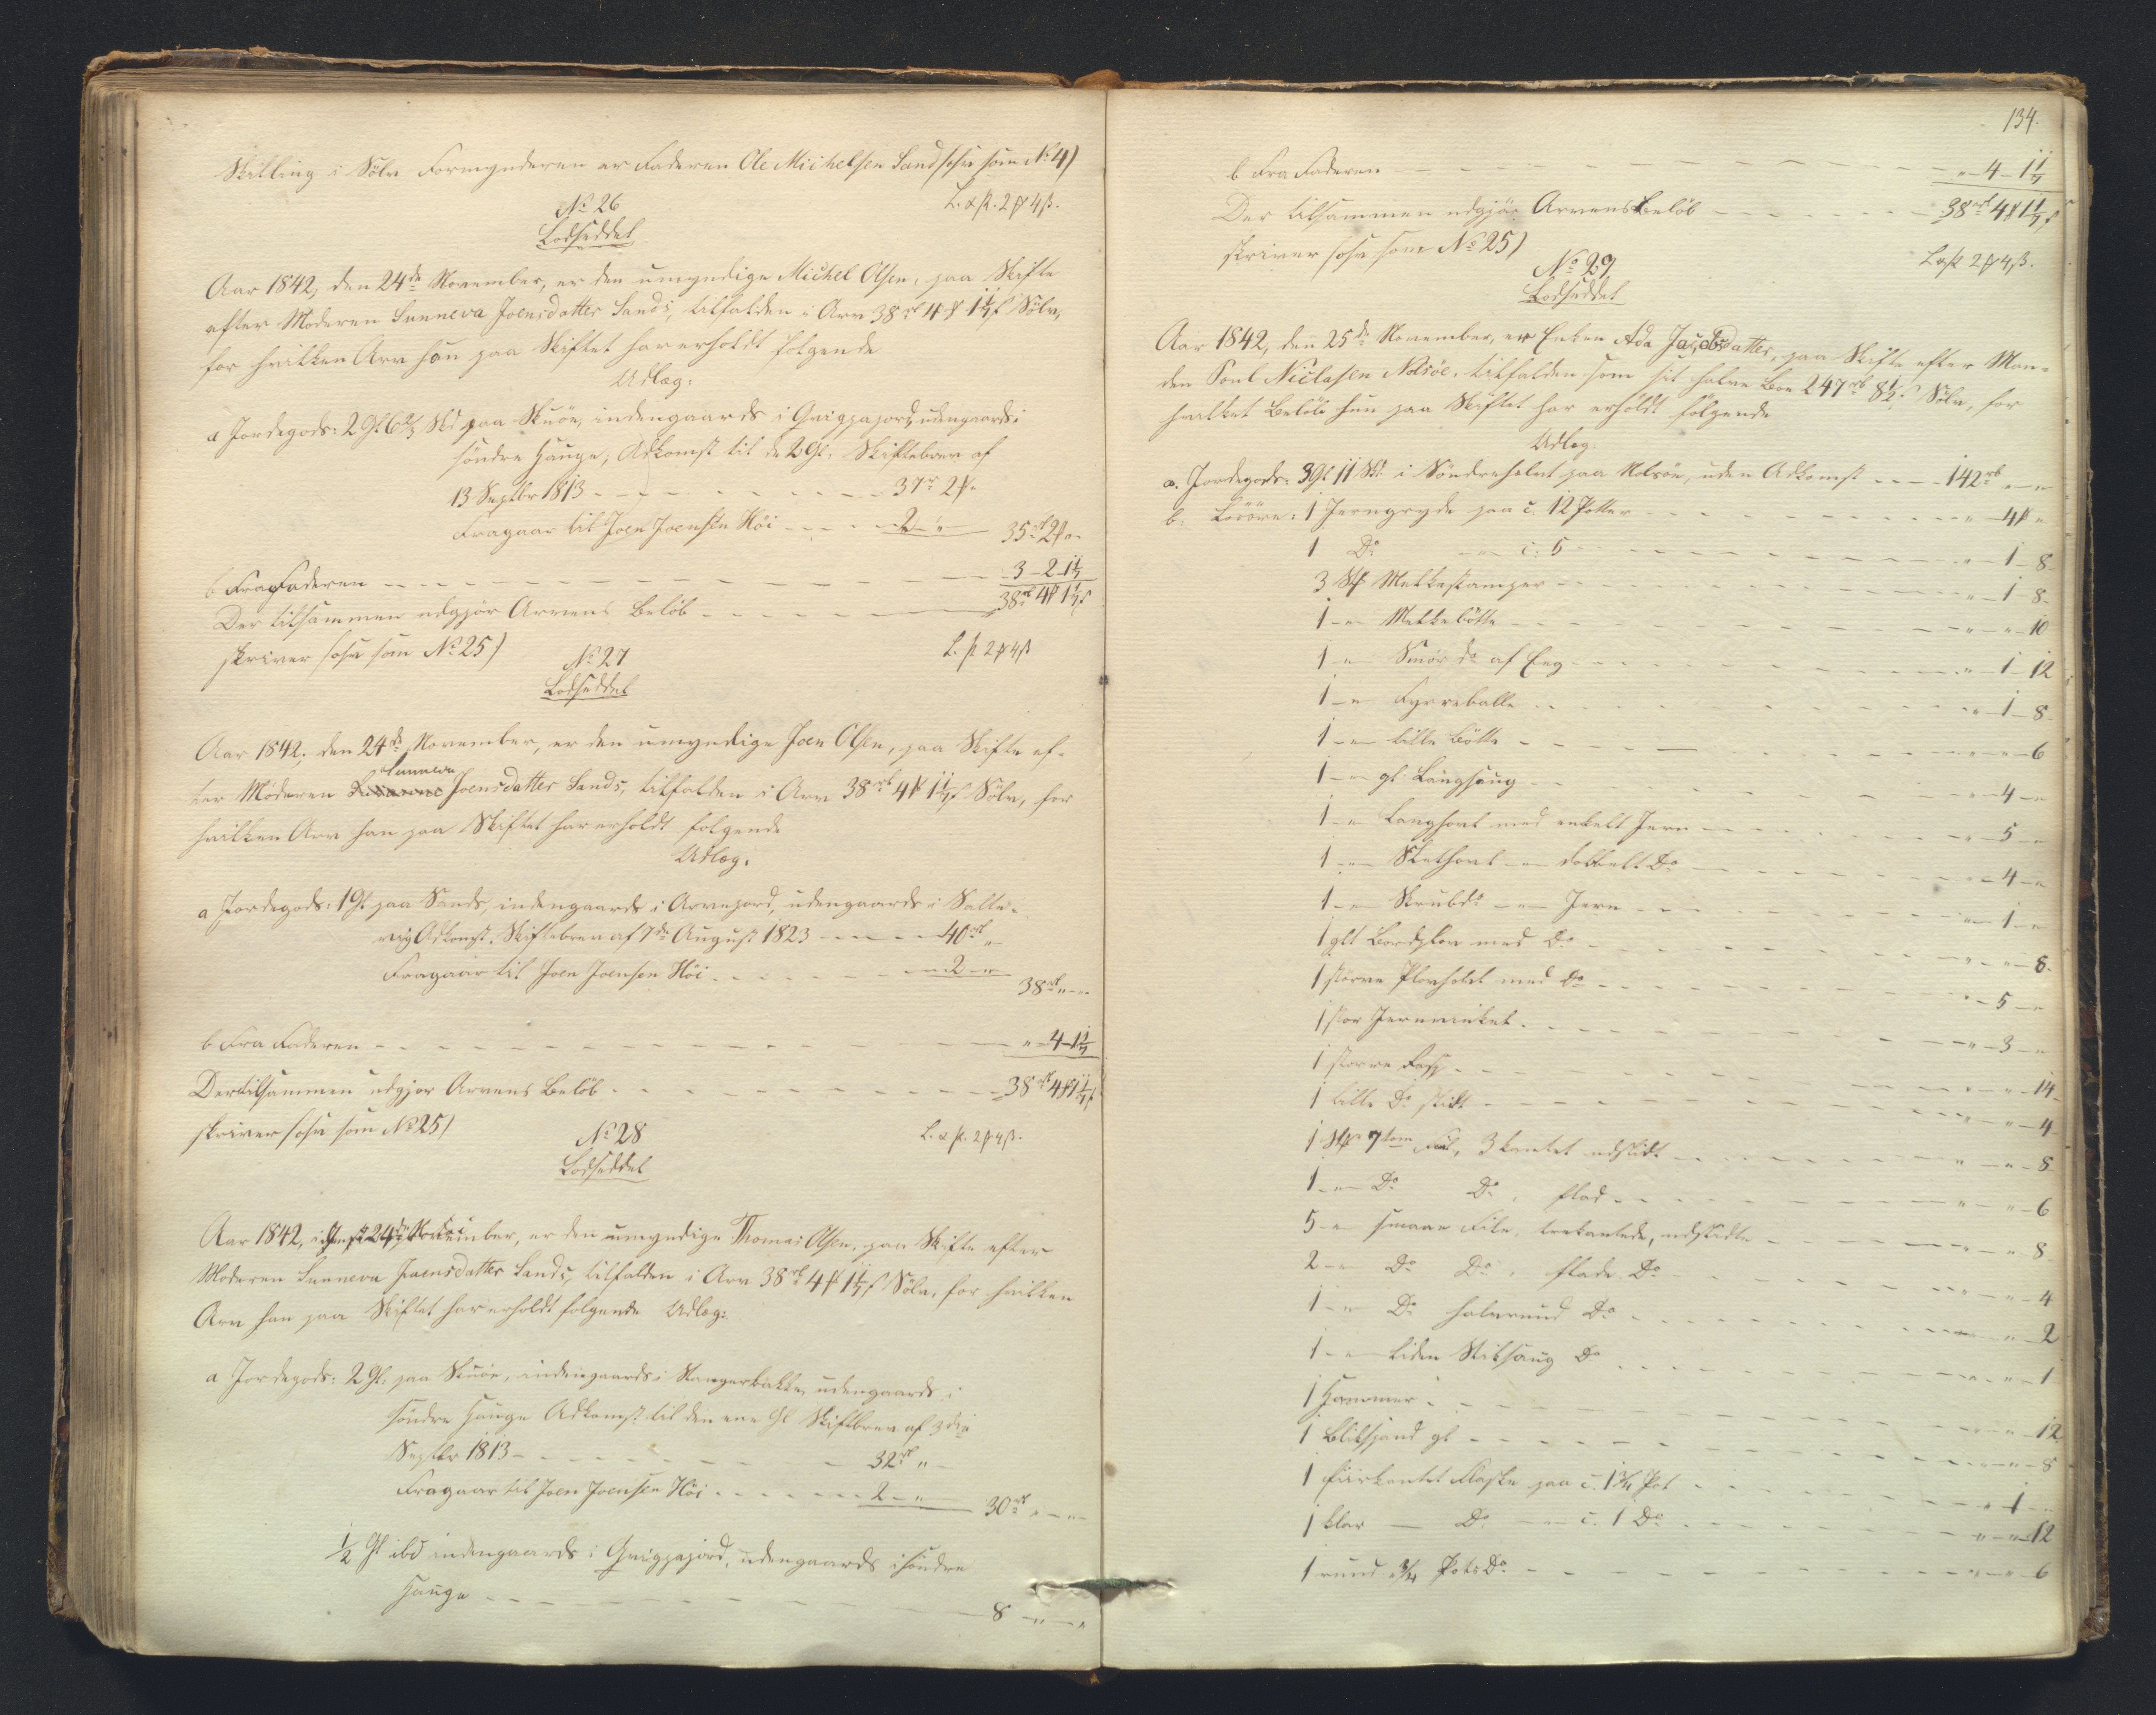 Skilling i Sölv Formynderen er Faderen Ole Michelsen Sand (: som No 4)
No 26
L. & S. 2 ℔ 4 ß.
Lodseddel
Aar 1842, den 24de November, er den umyndige Michel Olsen, paa Skifte
efter Moderen Sunneva Joensdatter Sands, tilfalden i Arv 38 rb 4 ℔ 1 1/7 ß Sölv,
for hvilken Arv han paa Skiftet har erholdt følgende
Udlæg:
a Jordegods: 2 Gl 6 2/3 Sk paa Skuöe, indengaards i Qviggjajord, udengaards i
söndre Hauge; Adkomst til de 2 Gl. Skiftebrev af
13 Septbr 1813 - - - 37 r 2 ℔ "
Fragaar til Joen Joensen Höi - - - 2 - " - 35 rb 2 ℔ " -
b Fra Faderen - - - 3 - 2 - 1 1/7
Der tilsammen udgjør Arvens Belöb - - - 38 rb 4 ℔ 1 1/7 ß
skriver som No 25)
No 27
L. S. 2 ℔ 4 ß
Lodseddel
Aar 1842, den 24de November, er den umyndige Joen Olsen, paa Skifte ef-
Sunneva
ter Moderen Joensdatter Sands, tilfalden i Arv 38 rb 4 ℔ 1 1/7 ß Sölv, for
hvilken Arv han paa Skiftet har erholdt følgende
Udlæg.
a Jordegods: 1 Gl paa Sands, indengaards i Arvejord, udengaards i Salte-
viig Adkomst. Skiftebrev af 7de August 1823 - - - 40 rb "
Fragaar til Joen Joensen Höi - - - 2 - " - 38 rb " - "
b Fra Faderen - - - " - 4 - 1 1/7
Der tilsammen udgjør Arvens Belöb - - - 38 rb 4 ℔ 1 1/7 ß
skriver som No 25)
No 28
L. & S. 2 ℔ 4 ß.
Lodseddel
Aar 1842, den 24de November, er den umyndige Thomas Olsen, paa Skifte efter
Moderen Sunneva Joensdatter Sands, tilfalden i Arv 38 rb 4 ℔ 1 1/7 ß Sölv, for hvilken
Arv han paa Skiftet har erholdt følgende Udlæg:
a Jordegods: 2 Gl: paa Skuöe, indengaards i Stangerbakke, udengaards i
söndre Hauge Adkomst til den ene Gl Skiftebrev af
Septbr 1813 - - - 32 rb " -
Fragaar til Joen Joensen Höi - - - 2 - " - 30 rb " - "
1/2 Gl ibd indengaards i Qviggjajord, udengaards i söndre
Hauge - - - 8 - " - "
134.
b Fra Faderen - - - " - 4 - 1 1/7
Der tilsammen udgjør Arvens Belöb - - - 38 rb 4 ℔ 1 1/7 ß
skriver som No 25)
No 29
L. & S. 2 ℔ 4 ß.
Lodseddel
Aar 1842, den 25de November, er Enken Ada Jacobsdatter, paa Skifte efter Man-
den Poul Niclasen Nolsöe, tilfalden som sit halve Boe 247 rb 8 1/2 ß Sölv, for
hvilket Belöb hun paa Skiftet har erholdt følgende
Udlæg.
a. Jordegods: 3 Gl 11 Sk i Söndrehelvt paa Nolsöe, uden Adkomst - - - 142 rb " - "
b. Lösöre: 1 Jerngryde paa c. 12 Potter - - - " - 4 ℔ "
1 Do - " - c. 5 - - - " - 1 - 8
3 Stk Melkestamper - - - " - 1 - 8
1 - " - Melkebötte - - - " - " - 10
1 - " - Smör do af Eeg - - - " - 1 - 12
1 - " - Fyrreballe - - - " - 1 - 8
1 - " - lille Bötte - - - " - " - 6
1 - " - gl. Langsaug - - - " - 4 - "
1 - " - Langhövl med enkelt Jern - - - " - 5 - "
1 - " - Slethövl - " - dobbelt Do - - - " - 4 - "
1 - " - Skrubdo - " - Jern - - - " - 1 - "
1 glt Bordplov med Do - - - " - " - 8
1 större Plovhövl med Do - - - " - 5 - "
1 stor Jernvinkel - - - " - 3 - "
1 större Rasp - - - " - " - 14
1 lille Do slidt - - - " - " - 4
1 Stk 7 tom. Fiil, 3 kantet udslidt - - - " - " - 8
1 - " - Do Do, flad - - - " - " - 6
5 - " - smaae File, trekantede, udslidte - - - " - " - 8
2 - " - Do Do, flade Do - - - " - " - 4
1 - " - Do halvrund Do - - - " - " - 2
1 - " - liden Stiksaug Do - - - " - " - 1
1 Hammer - - - " - " - 12
1 Blikspand gl - - - " - " - 8
1 fiirkantet Flaske paa c. 1 3/4 Pot - - - " - 1 - "
1 klar - Do - " - c. 1 Do - - - " - " - 12
1 rund 3/4 Pots Do - - - " - " - 6